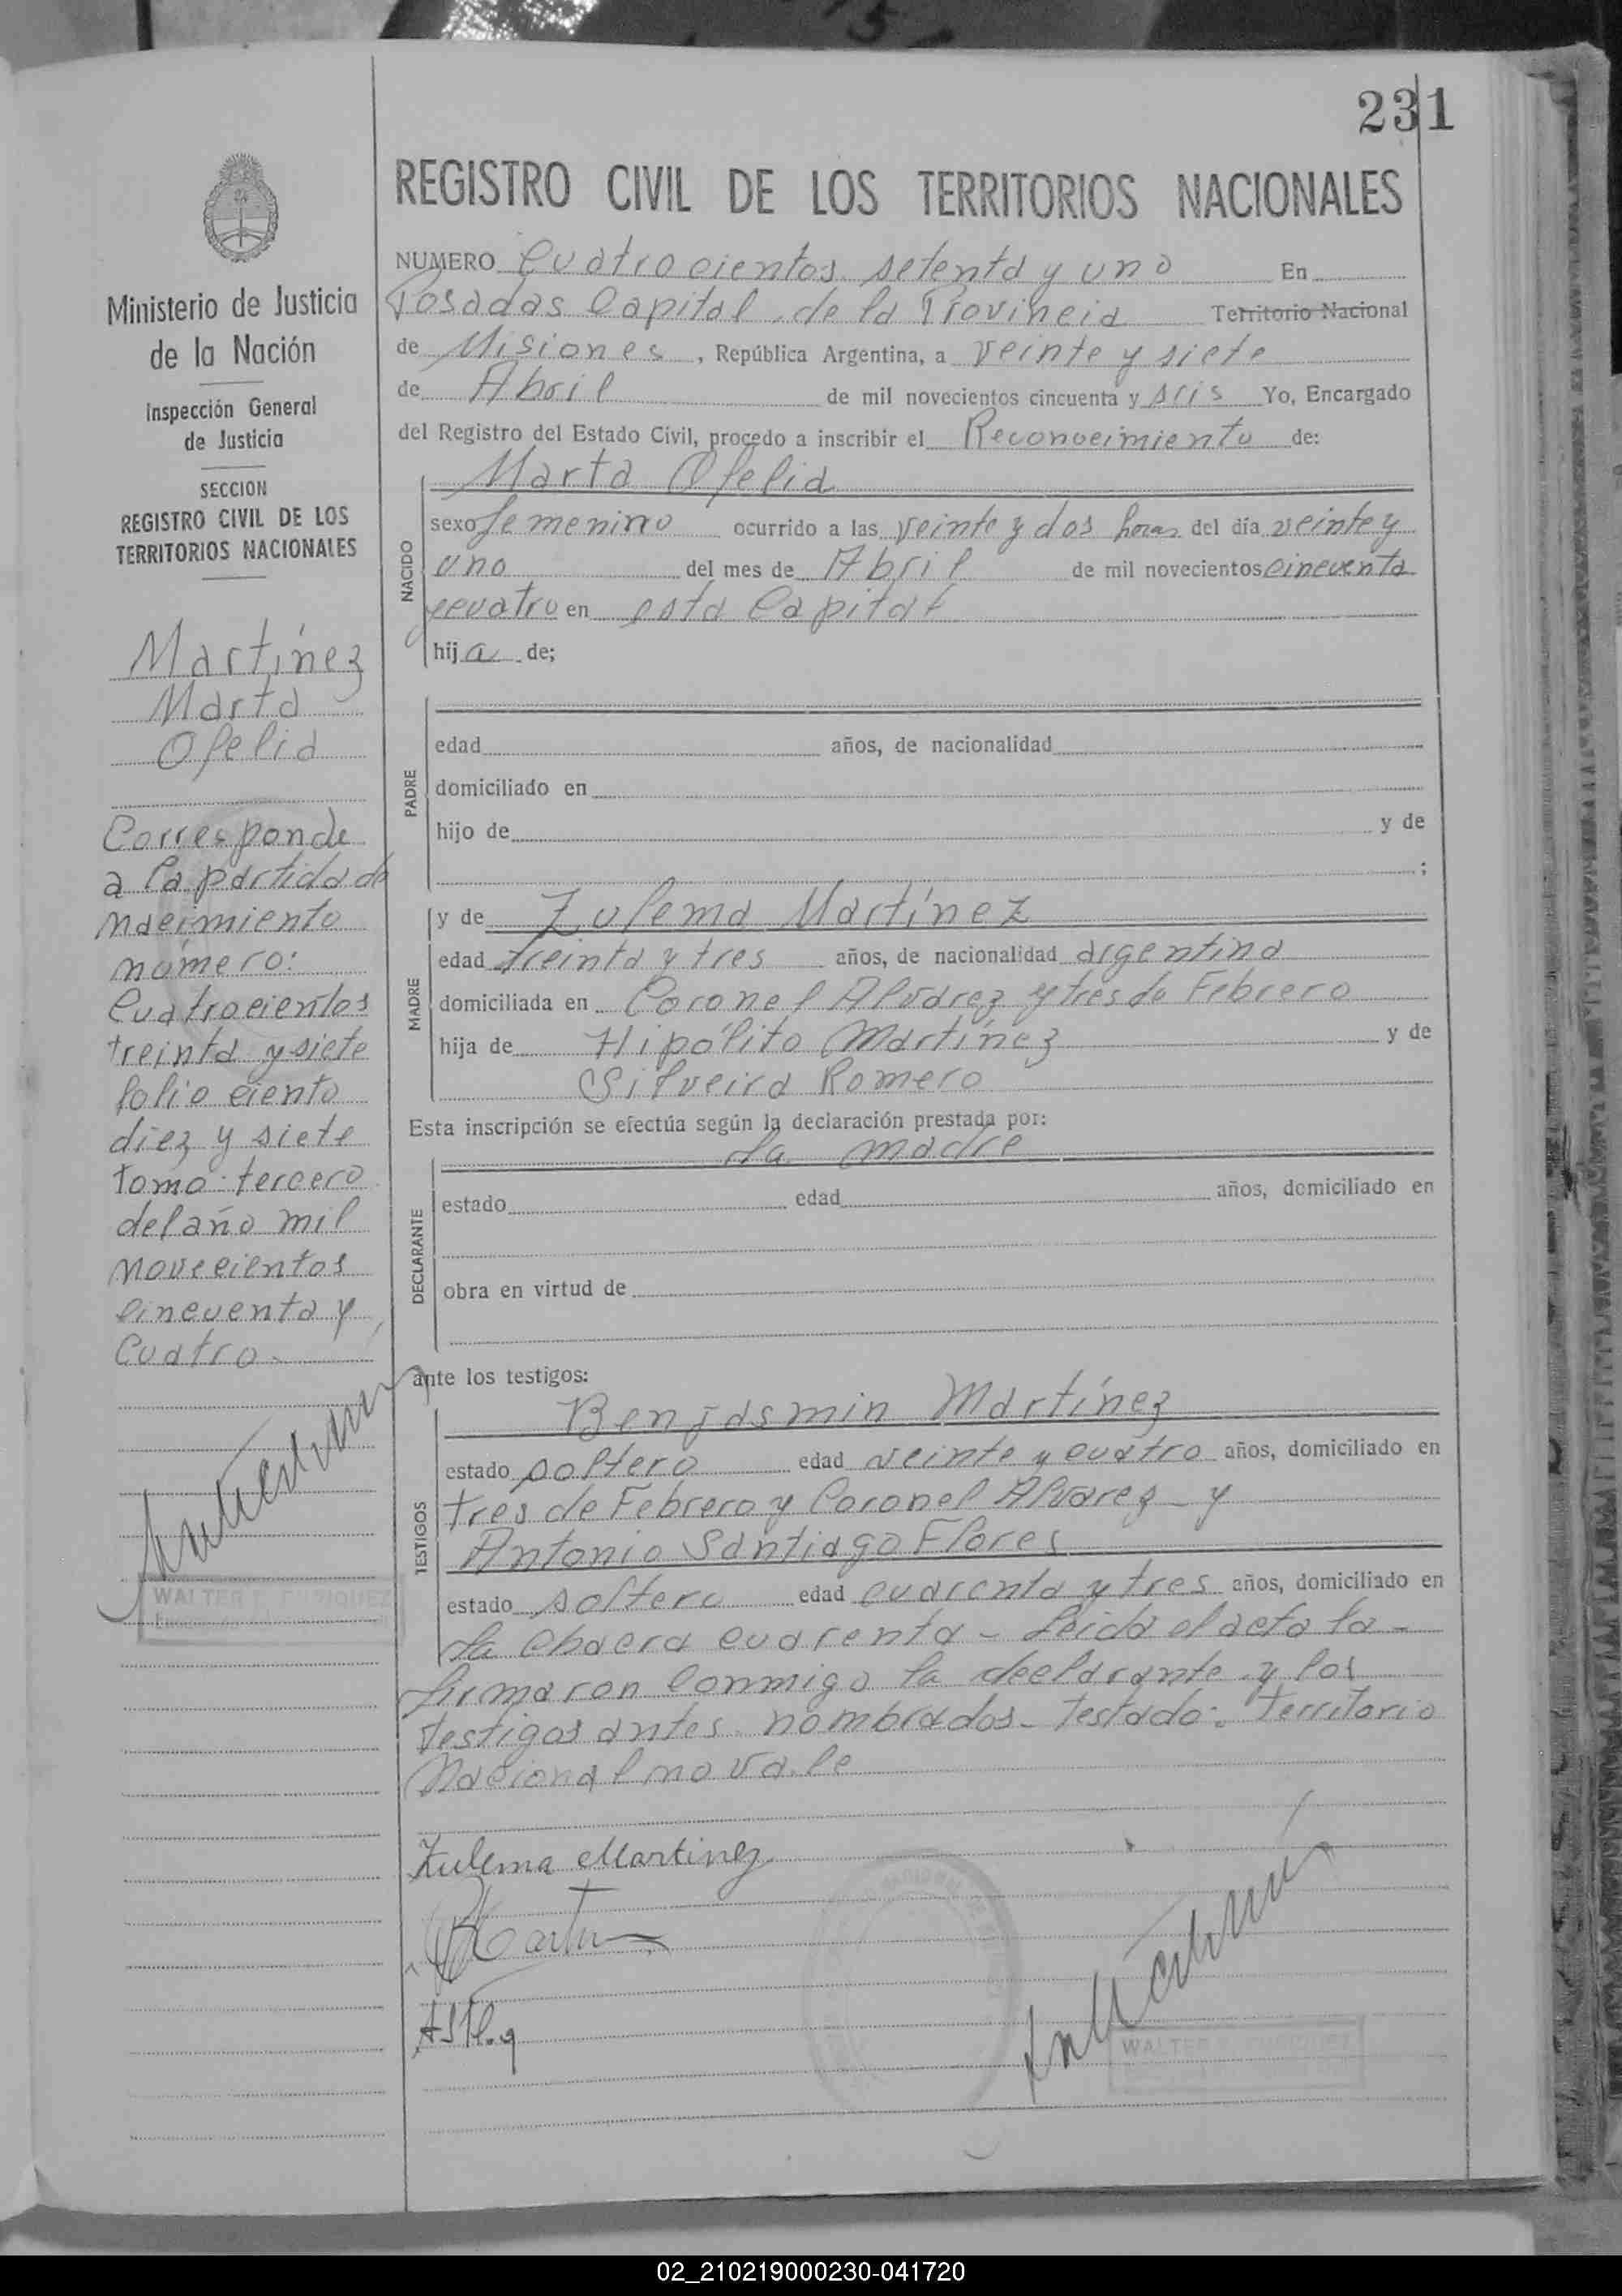 231
REGISTRO CIVIL DE LOS TERRITORIOS NACIONALES
Ministerio de Justicia
de la Nación
Inspección General
de Justicia
SECCION
REGISTRO CIVIL DE LOS
TERRITORIOS NACIONALES
Martínez
Marta
Ofelia
Corresponde
a la partida de
nacimiento
número:
Cuatrocientos
treinta y siete
folio ciento
diez y siete
tomo tercero
del año mil
novecientos
cincuenta y
cuatro.
WALTER E. ENRIQUEZ
NUMERO Cuatrocientos setenta y uno En
Posadas Capital de la Provincia Territorio Nacional
de Misiones, República Argentina, a veinte y siete
de Abril de mil novecientos cincuenta y seis Yo, Encargado
del Registro del Estado Civil, procedo a inscribir el Reconocimiento de:
Marta Ofelia
NACIDO
sexo femenino ocurrido a las veinte y dos horas del día veinte y
uno del mes de Abril de mil novecientos cincuenta
y cuatro en esta Capital
hija de;
PADRE
edad años, de nacionalidad
domiciliado en
hijo de y de
;
MADRE
y de Zulema Martínez
edad treinta y tres años, de nacionalidad argentina
domiciliada en Coronel Alvarez y tres de Febrero
hija de Hipólito Martínez y de
Silveira Romero
Esta inscripción se efectúa según la declaración prestada por:
la madre
DECLARANTE
estado edad años, domiciliado en
obra en virtud de
ante los testigos:
TESTIGOS
Benjasmin Martínez
estado soltero edad veinte y cuatro años, domiciliado en
tres de Febrero y Coronel Alvarez y
Antonio Santiago Flores
estado soltero edad cuarenta y tres años, domiciliado en
la Chacra cuarenta - Leida el acta la -
firmaron conmigo la declarante y los
testigos antes nombrados - Testado: Territorio
Nacional no vale
Zulema Martinez
WALTER E. ENRIQUEZ
02_210219000230-041720